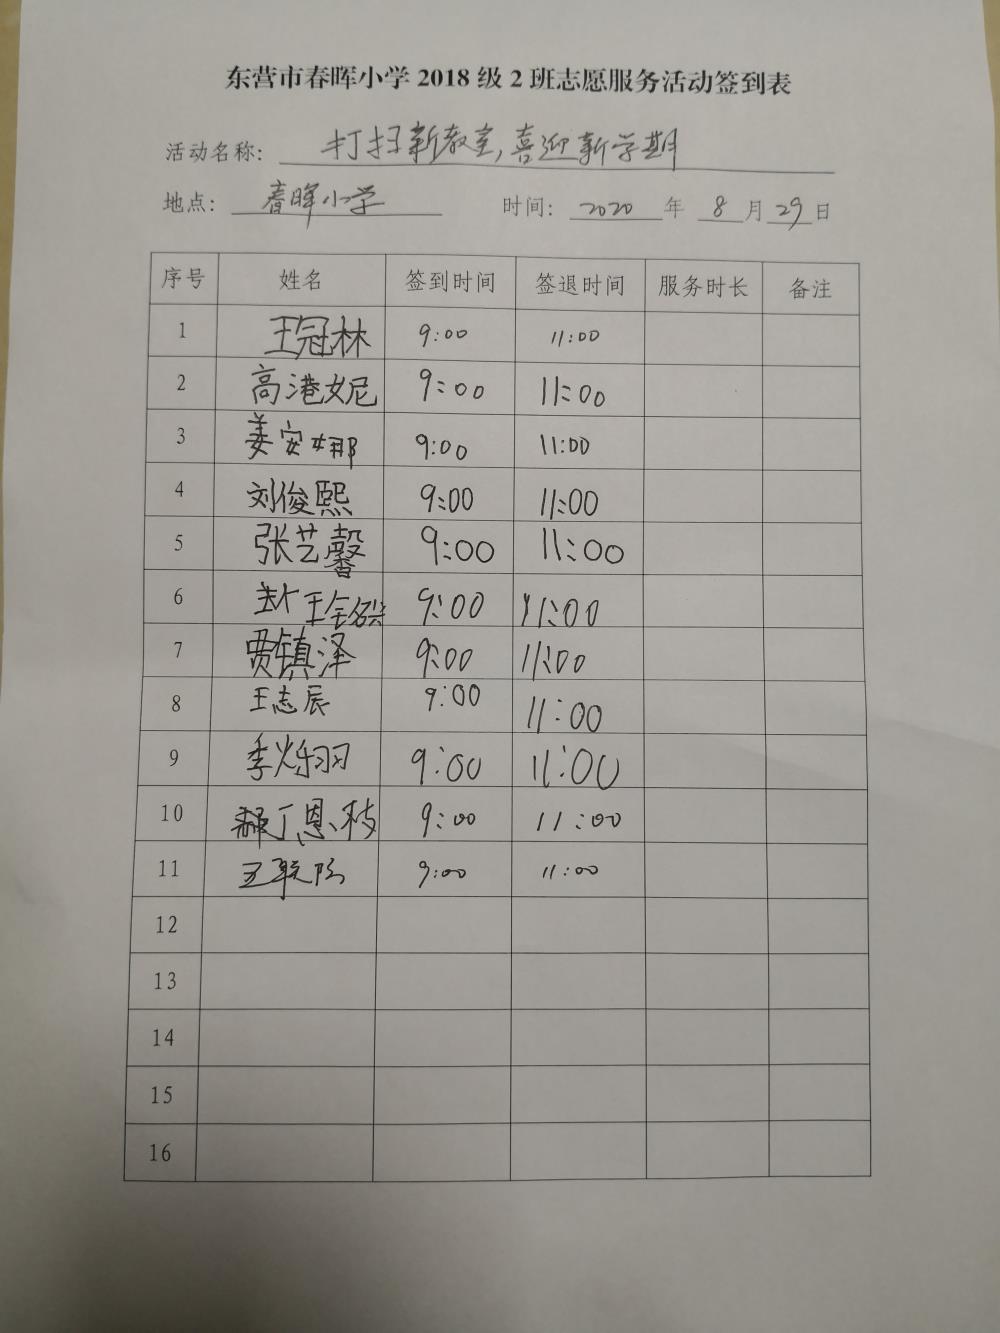 东营市春晖小学2018级2班志愿服务活动签到表
活动名称: 打扫新教室,喜迎新学期
地点: 春晖小学 时间: 2020 年 8 月 29 日
序号 姓名 签到时间 签退时间 服务时长 备注
1 王冠林 9:00 11:00
2 高港妮 9:00 11:00
3 姜安娜 9:00 11:00
4 刘俊熙 9:00 11:00
5 张艺馨 9:00 11:00
6 王 9:00 11:00
7 贾镇泽 9:00 11:00
8 王志辰 9:00 11:00
9 李烁羽 9:00 11:00
10 丁恩枝 9:00 11:00
11 9:00 11:00
12
13
14
15
16